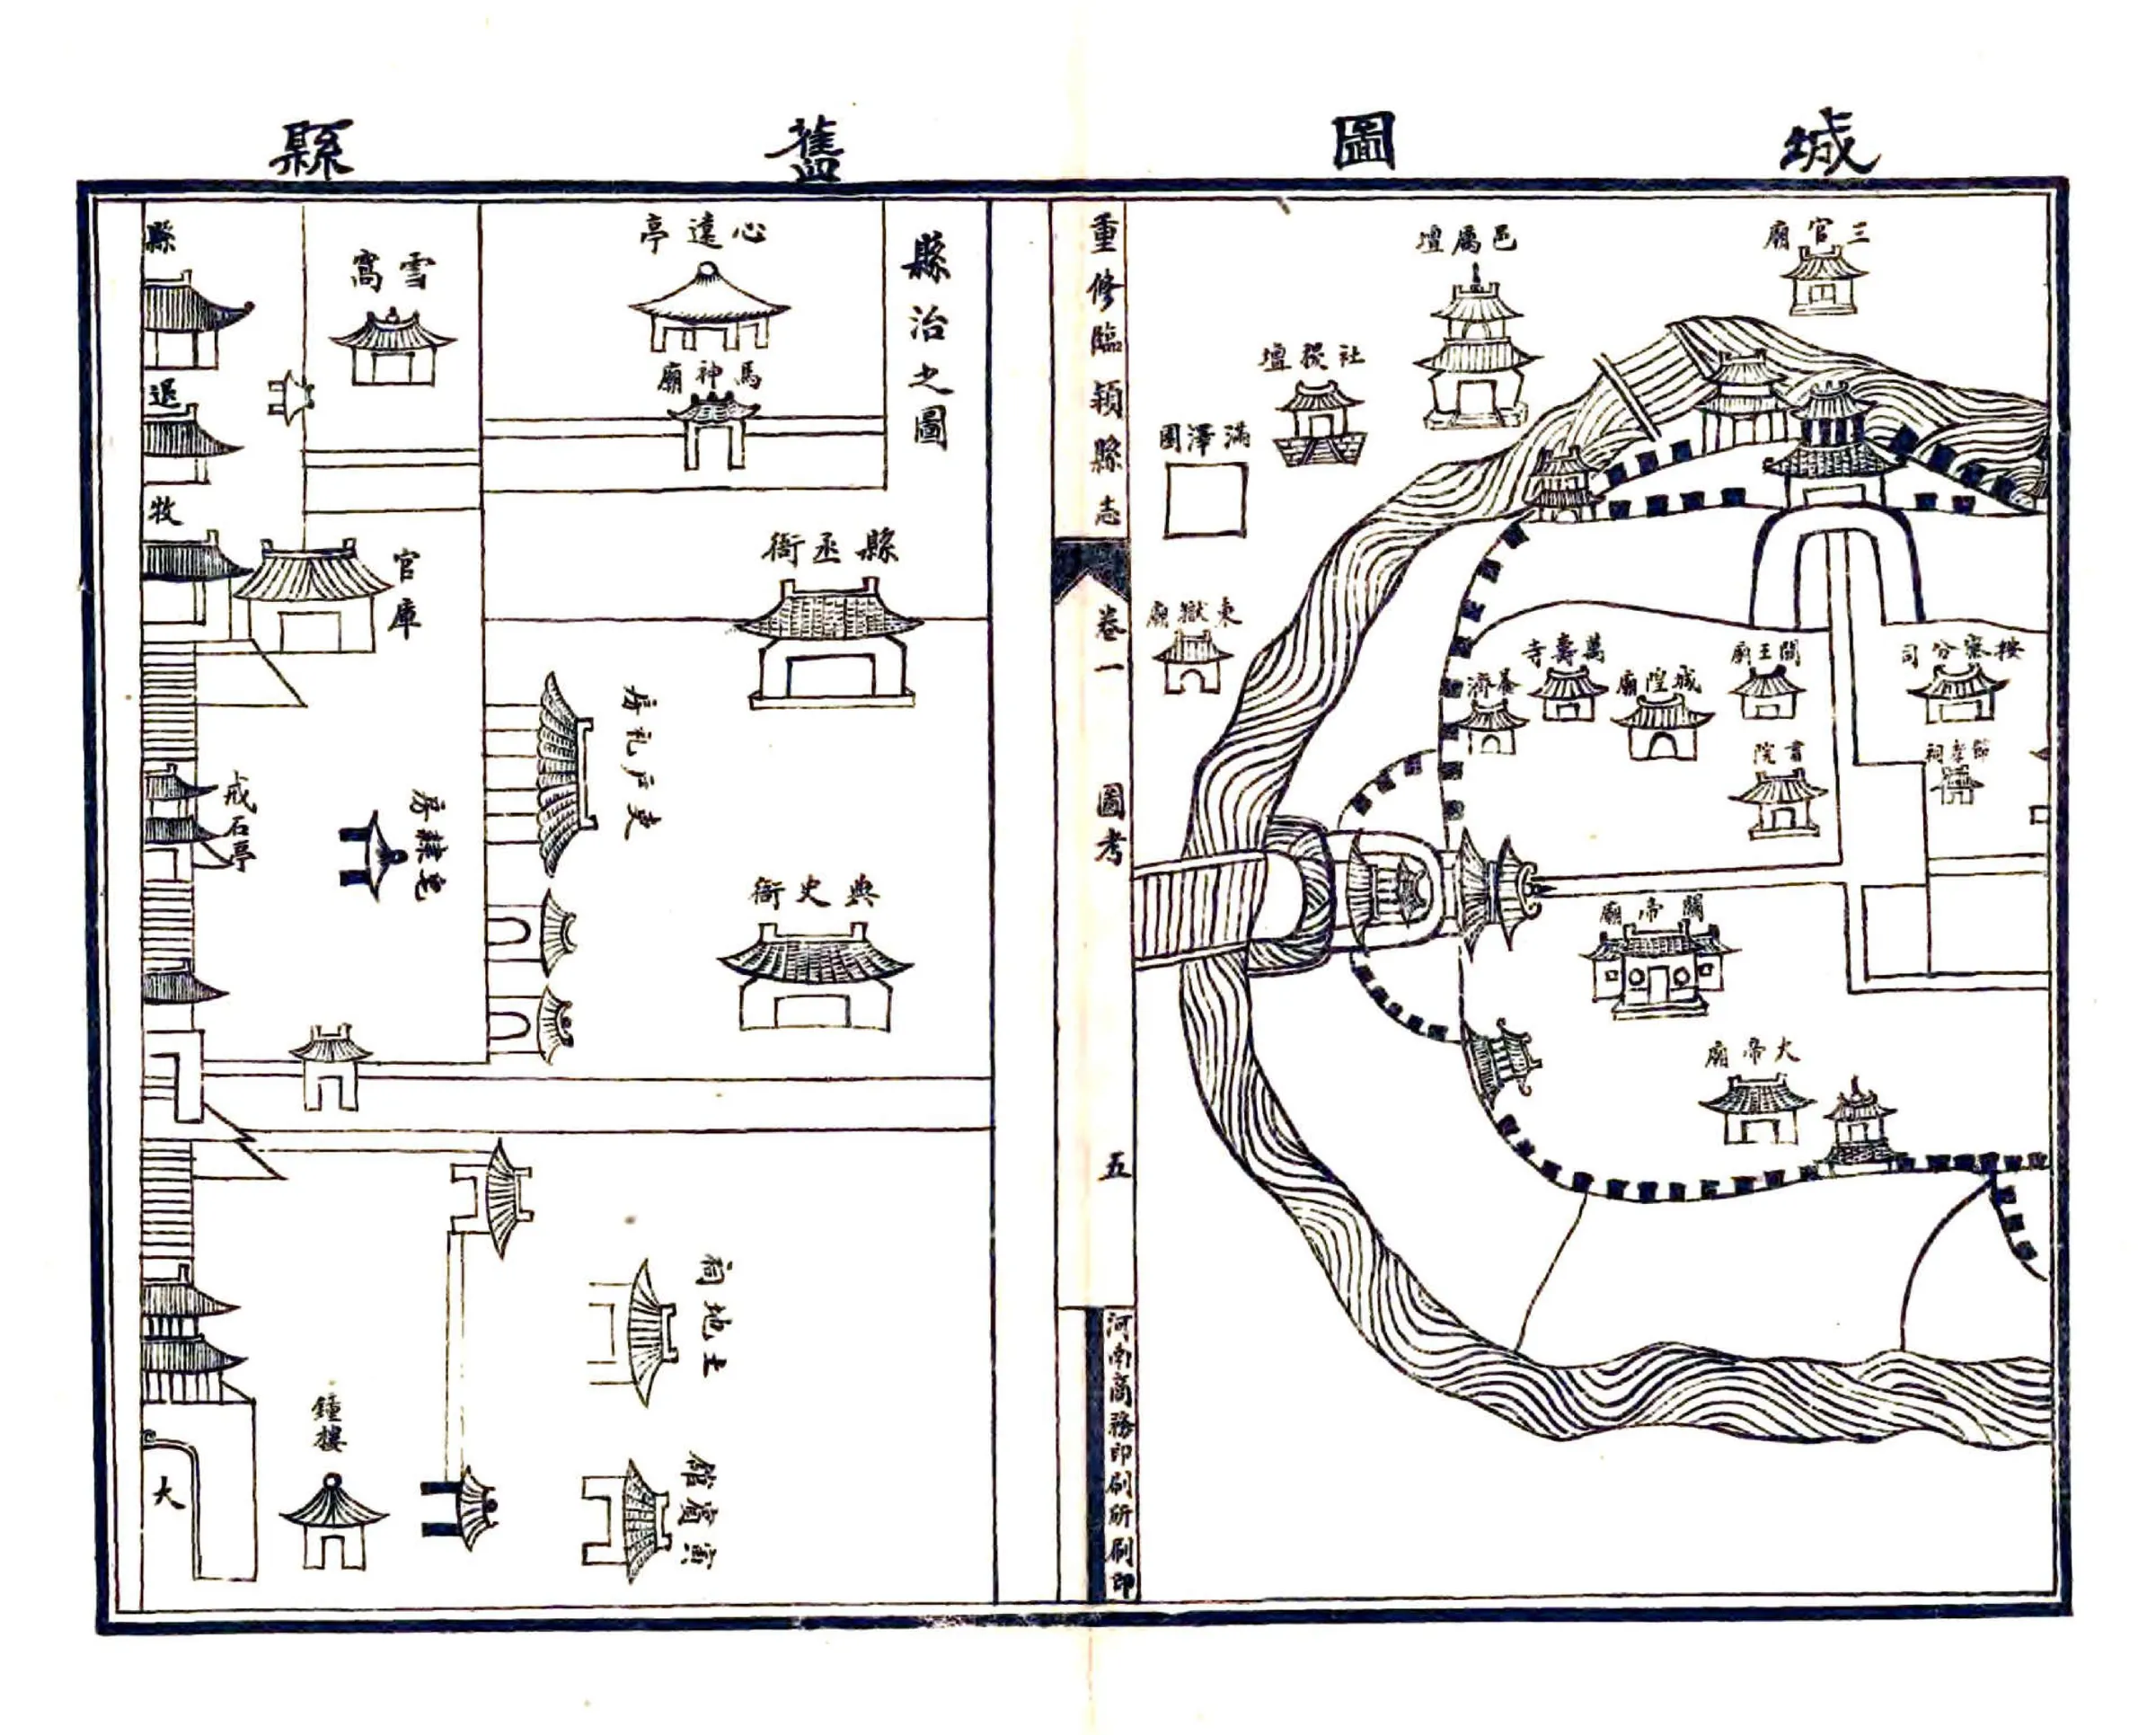 城圖
三官廟
邑厲壇
社稷壇
漏澤園
東嶽廟
按察分司
關王廟
城隍廟
萬壽寺
養濟
節孝祠
書院
關帝廟
火帝廟
重修臨潁縣志
卷一
圖考
五
河南商務印刷所刷印
舊縣
縣治之圖
心遠亭
馬神廟
縣丞衙
吏戶礼房
典史衙
土地祠
寅賓館
雪窩
官庫
戒石亭
鐘樓
縣
退
牧
大